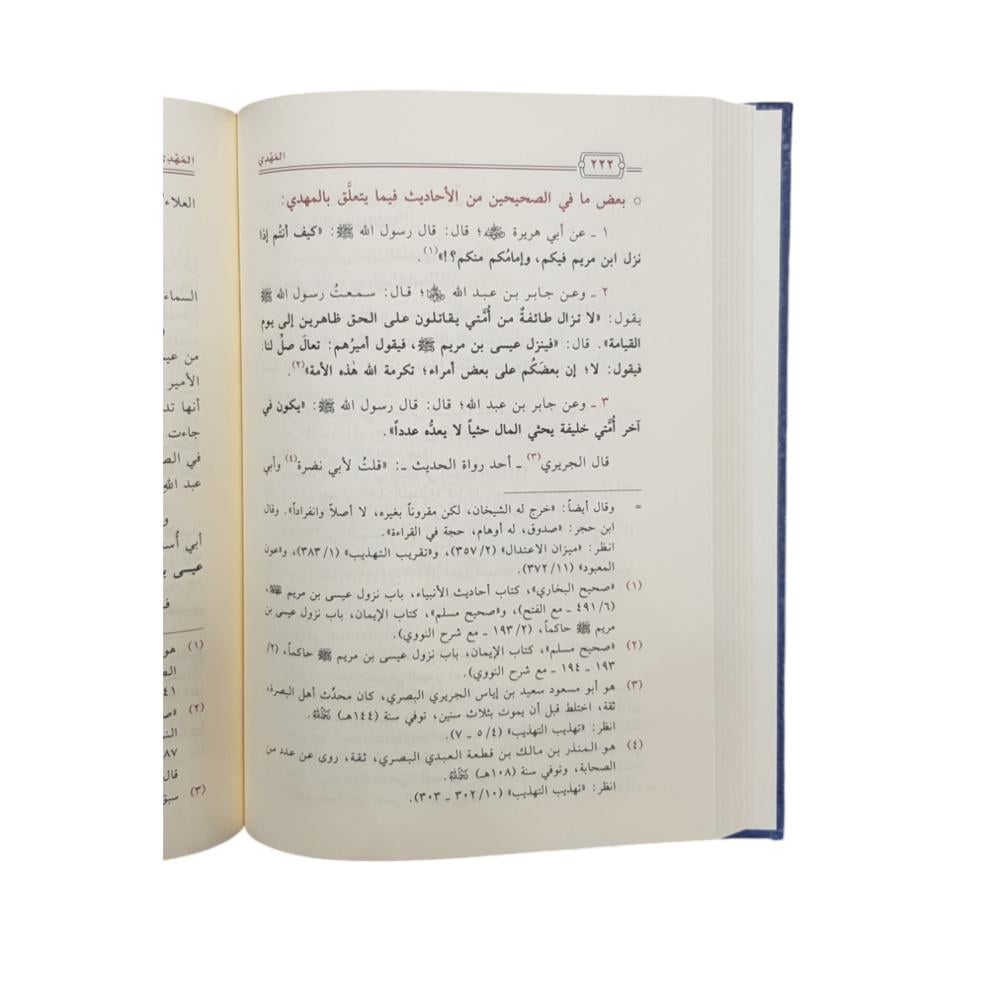 ٢٢٢
المَهْدِي
○ بعض ما في الصحيحين من الأحاديث فيما يتعلَّق بالمهدي:
١ ـ عن أبي هريرة رضي الله عنه؛ قال: قال رسول الله ﷺ: «كيف أنتُم إذا
نزل ابن مريم فيكم، وإمامُكم منكم؟!»(١).
٢ ـ وعن جابر بن عبد الله رضي الله عنهما؛ قال: سمعتُ رسول الله ﷺ
يقول: «لا تزال طائفةٌ من أُمَّتي يقاتلون على الحق ظاهرين إلى يوم
القيامة». قال: «فينزل عيسى بن مريم ﷺ، فيقول أميرُهم: تعالَ صلِّ لنا.
فيقول: لا؛ إن بعضَكُم على بعض أمراء؛ تكرمة الله هٰذه الأمة»(٢).
٣ ـ وعن جابر بن عبد الله؛ قال: قال رسول الله ﷺ: «يكون في
آخر أُمَّتي خليفة يحثي المال حثياً لا يعدُّه عدداً».
قال الجريري(٣) ـ أحد رواة الحديث ـ: «قلتُ لأبي نضرة(٤) وأبي
= وقال أيضاً: «خرج له الشيخان، لكن مقروناً بغيره، لا أصلاً وانفراداً». وقال
ابن حجر: «صدوق، له أوهام، حجة في القراءة».
انظر: «ميزان الاعتدال» (٣٥٧/٢)، و«تقريب التهذيب» (٣٨٣/١)، و«عون
المعبود» (٣٧٢/١١).
(١) «صحيح البخاري»، كتاب أحاديث الأنبياء، باب نزول عيسى بن مريم ﷺ،
(٤٩١/٦ ـ مع الفتح)، و«صحيح مسلم»، كتاب الإيمان، باب نزول عيسى بن
مريم ﷺ حاكماً، (١٩٣/٢ ـ مع شرح النووي).
(٢) «صحيح مسلم»، كتاب الإيمان، باب نزول عيسى بن مريم ﷺ حاكماً، (٢/
١٩٣ ـ ١٩٤ ـ مع شرح النووي).
(٣) هو أبو مسعود سعيد بن إياس الجريري البصري، كان محدِّث أهل البصرة،
ثقة، اختلط قبل أن يموت بثلاث سنين، توفي سنة (١٤٤هـ) رحمه الله.
انظر: «تهذيب التهذيب» (٥/٤ ـ ٧).
(٤) هو المنذر بن مالك بن قطعة العبدي البصري، ثقة، روى عن عدد من
الصحابة، وتوفي سنة (١٠٨هـ) رحمه الله.
انظر: «تهذيب التهذيب» (٣٠٢/١٠ ـ ٣٠٣).
العلاء
السماء
من
الأمير
أنها
جاءت
في
أبي
عيسى
(١) هو
(٢)
قال
(٣)